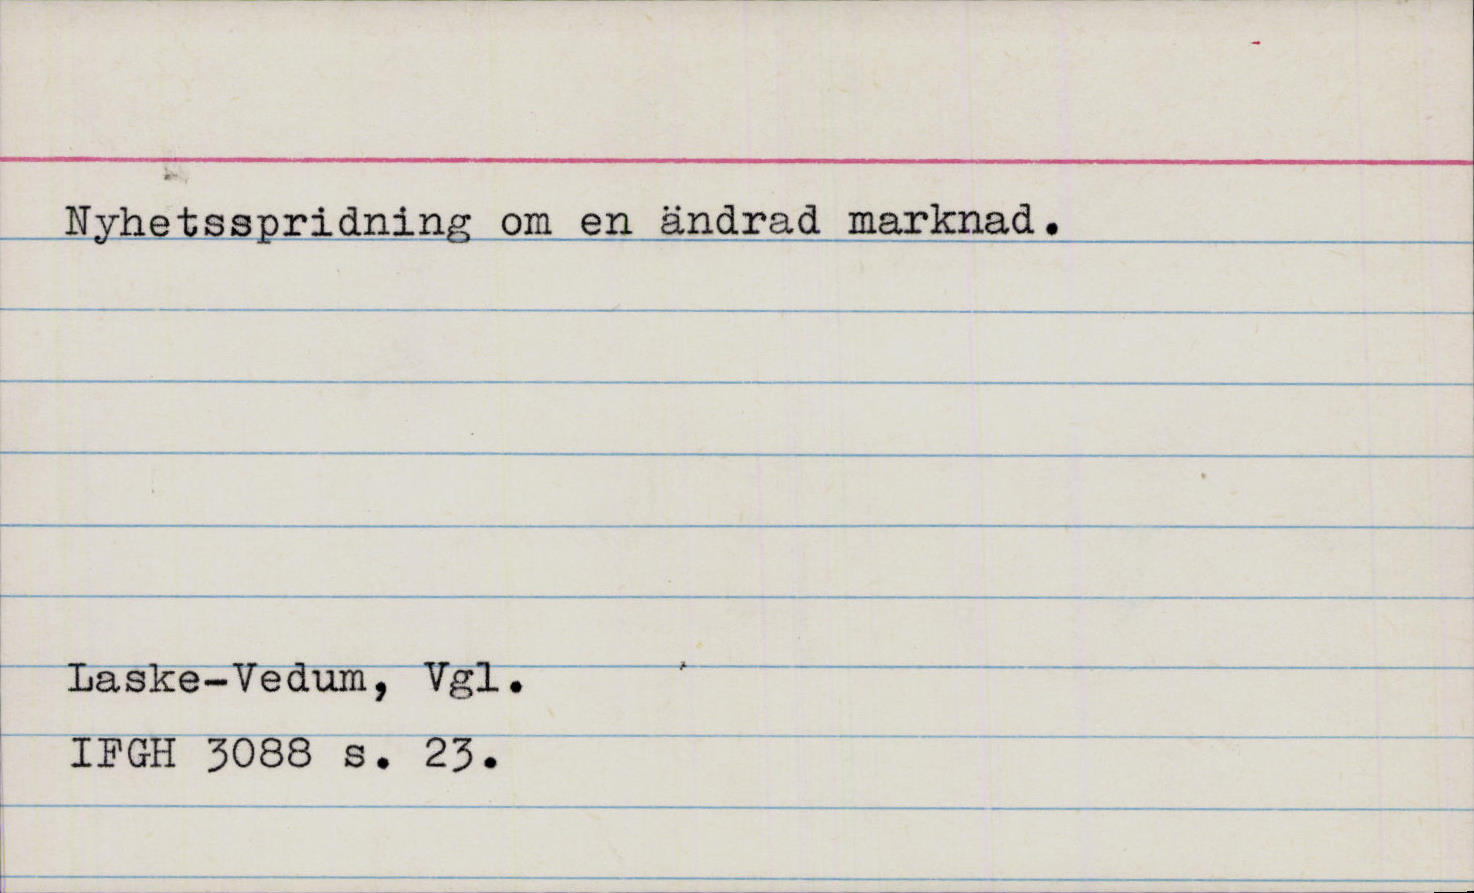 Nyhetsspridning om en ändrad marknad.
Laske-Vedum, Vgl.
IFGH 3088 s. 23.